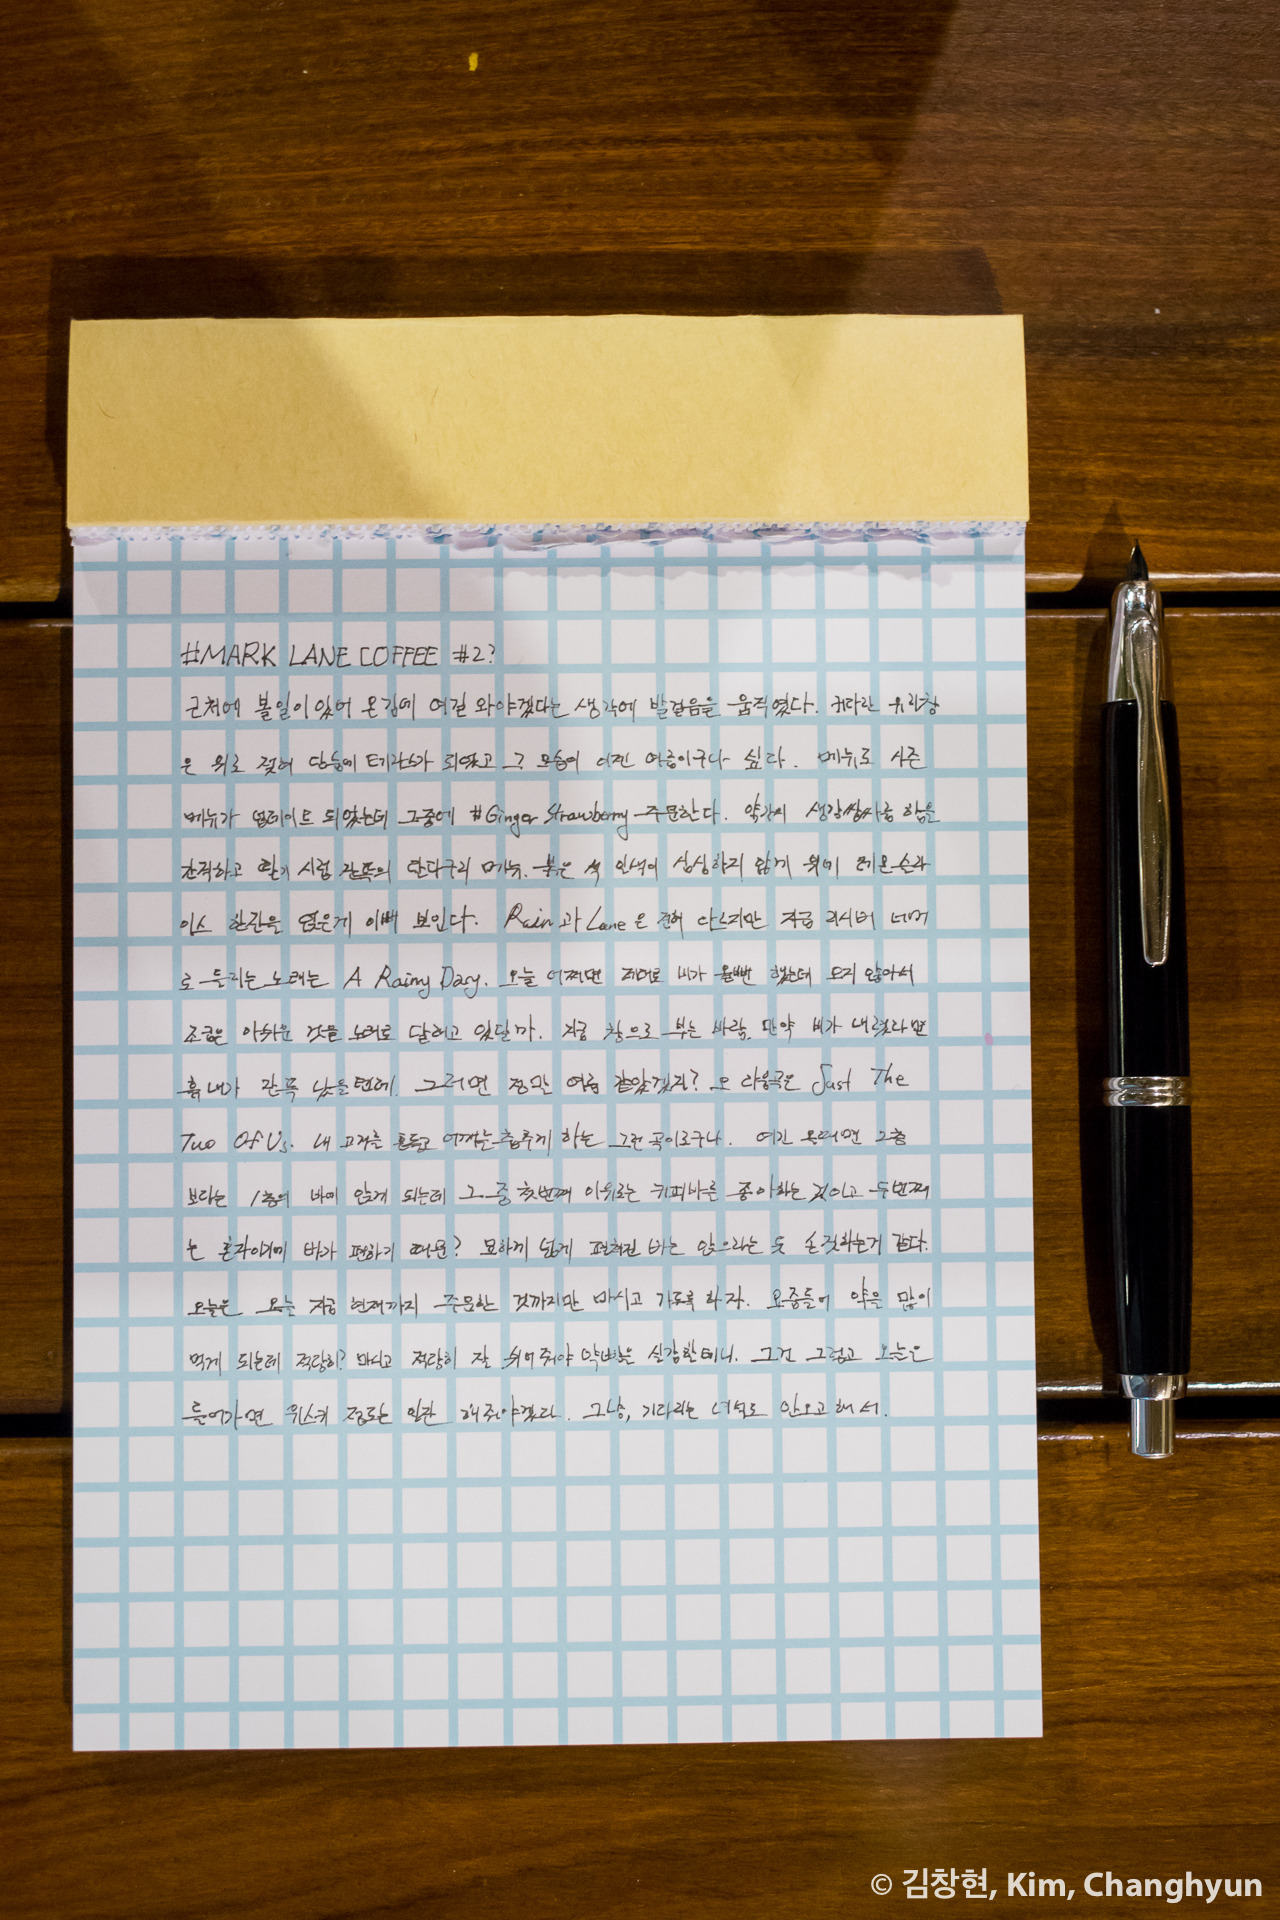 #MARK LANE COFFEE #2?
근처에 볼일이 있어 온김에 여길 와야겠다는 생각에 발걸음을 움직였다. 커다란 유리창
은 위로 젖혀 당분에 테라스가 되었고 그 모습이 이젠 여름이구나 싶다. 메뉴로 시즌
메뉴가 업데이트 되었는데 그중에 #Ginger Strawberry 주문한다. 약간의 생강쌉싸름함을
간직하고 딸기 시럽 가득의 단다구리 메뉴. 붉은 색 인색이 심심하지 않게 위에 레몬슬라
이스 한장을 얹은게 이뻐 보인다. Rain과 Lane은 전혀 다르지만 지금 리시버 너머
로 들리는 노래는 A Rainy Day. 오늘 어쩌면 제대로 비가 올뻔 했는데 오지 않아서
조금은 아쉬운 것을 노래로 달래고 있달까. 지금 창으로 부는 바람, 만약 비가 내렸다면
흙내가 가득 났을텐데. 그러면 정말 여름 같았겠지? 오 다음곡은 Just The
Two Of Us. 내 고개를 흔들고 어깨는 춤추게 하는 그런 곡이로구나. 여긴 올때면 2층
보다는 1층의 바에 앉게 되는데 그 중 첫번째 이유로는 커피바를 좋아하는 것이고 두번째
는 혼자이기에 바가 편하기 때문? 묘하게 넓게 펼쳐진 바는 앉으라는 듯 손짓하는거 같다.
오늘은 오늘 지금 현재까지 주문한 것까지만 마시고 가도록 하자. 요즘들어 약을 많이
먹게 되는데 적당히? 마시고 적당히 잘 쉬어줘야 약빨을 실감할테니. 그건 그렇고 오늘은
들어가면 위스키 정도는 일잔 해줘야겠다. 그냥, 기다리는 녀석도 안오고 해서.
© 김창현, Kim, Changhyun